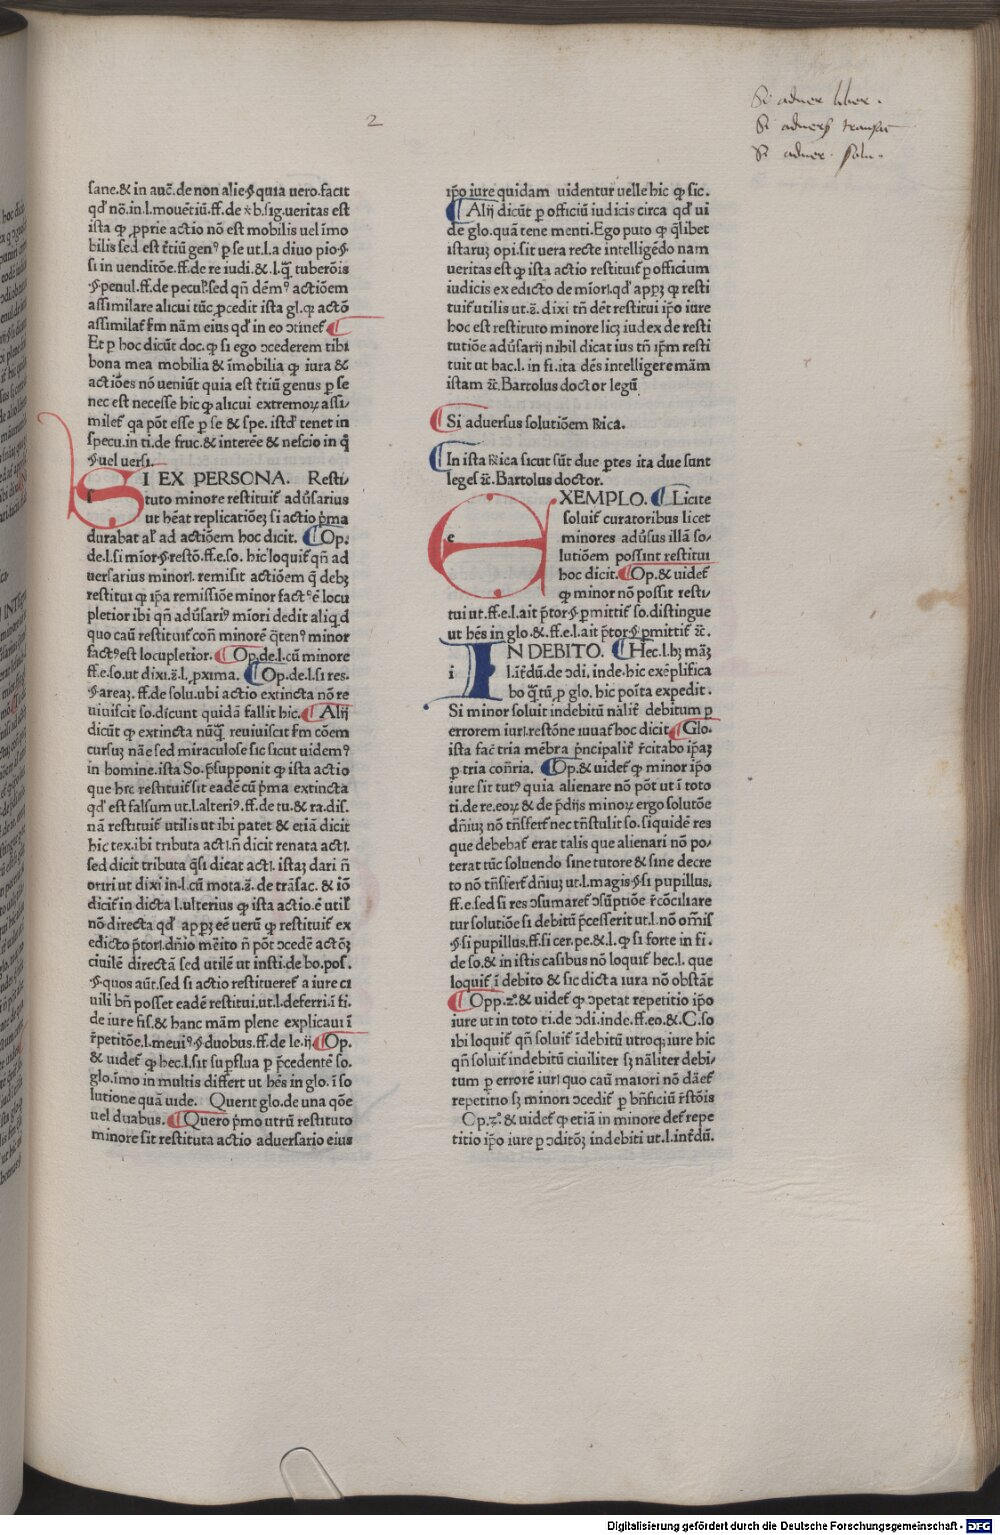 Si aduer liber.
Si aduers transac
Si aduer. solu.
2
sane.& in auc̄.de non alie.§ quia uero.facit
qd̓ nō.in.l.mouētiū.ff.de v̓b.sig.ueritas est
ista ꝙ ꝓprie actio nō est mobilis uel īmo
bilis sed est t̓tiū genꝰ ꝑ se ut.l.a diuo pio.§
si in uenditōe.ff.de re iudi.& .l.q̄ tuberōis
§ penul.ff.de pecul̓.sed qn̄ dēmꝰ actiōem
assimilare alicui tūc ꝓcedit ista gl.ꝙ actō
assimilat̓ s̓m nām eius qd̓ in eo ↄtinet̓
Et ꝑ hoc dicūt doc.ꝙ si ego ↄcederem tibi
bona mea mobilia & īmobilia ꝙ iura &
actiōes nō ueniūt quia est t̓tiū genus ꝑ se
nec est necesse hic ꝙ alicui extremoꝝ assi⸗
milet̓ qa pōt esse ꝑ se & spe. istd̓ tenet in
specu.in ti.de fruc.& interēe & nescio in q̄
§ uel uersi.
SI EX PERSONA. Resti⸗
tuto minore restituit̓ adūsarius
ut hēat replicatiōeꝫ si actio p̓ma
durabat al̓ ad actiōem hoc dicit. Op.
de.l.si mīor.§ restō.ff.e.so. hic loquit̓ qn̄ ad
uersarius minori. remisit actiōem q̄ debꝫ
restitui ꝙ ip̄a remissiōe minor factꝰ ē locu
pletior ibi qn̄ adūsariꝰ mīori dedit aliq̓d
quo caū restituit̓ con̄ minorē q̄tenꝰ minor
factꝰ est locupletior. Op.de.l.cū minore
ff.e.so.ut dixi.s̄.l.ꝓxima. Op.de.l.si res.
§ areaꝫ. ff.de solu.ubi actio extincta nō re
uiuiscit so.dicunt quidā fallit hic. Alij
dicūt ꝙ extincta nūq̄ reuiuiscit s̓m cōem
cursuꝫ nāe sed miraculose sic sicut uidemꝰ
in homine.ista So.p̄supponit ꝙ ista actio
que hic restituit̓ sit eadē cū p̓ma extincta
qd̓ est falsum ut.l.alteriꝰ.ff.de tu.& ra.dis.
nā restituit̓ utilis ut ibi patet & etiā dicit
hic tex.ibi tributa acti.n̄ dicit renata acti.
sed dicit tributa q̄si dicat acti. istaꝫ dari n̄
oriri ut dixi in.l.cū mota.s̄. de trāsac. & iō
dicit̓ in dicta l.ulterius ꝙ ista actio.ē util̓
nō directa qd̓ appꝫ eē uerū ꝙ restituit̓ ex
edicto p̄tori.dn̄io mēito n̄ pōt ↄcedē actōꝫ
ciuilē directā sed utilē ut insti.de bo.pos.
§ quos aūt.sed si actio restitueret̓ a iure ci
uili bn̄ posset eadē restitui.ut.l.deferri.ī fi.
de iure fis.& hanc mām plene explicaui ī
r̓petitōe.l.meuiꝰ.§ duobus.ff.de le.ij. Op.
& uidet̓ ꝙ hec.l.sit suꝑflua ꝑ p̄cedentē so.
glo.īmo in multis differt ut hēs in glo.ī so
lutione quā uide. Querit glo.de una qōe
uel duabus. Quero p̓mo utrū restituto
minore sit restituta actio aduersario eius
ip̄o iure quidam uidentur uelle hic ꝙ sic.
Alij dicūt ꝑ officiū iudicis circa qd̓ ui
de glo.quā tene menti.Ego puto ꝙ q̄libet
istaruꝫ opi.sit uera recte intelligēdo nam
ueritas est ꝙ ista actio restituit̓ ꝑ officium
iudicis ex edicto de mīori.qd̓ appꝫ ꝙ resti
tuit̓ utilis ut.s̄. dixi tn̄ dēt restitui ip̄o iure
hoc est restituto minore licꝫ iudex de resti
tutiōe adūsarij nihil dicat ius tn̄ ip̄m resti
tuit ut hac.l. in fi.ita dēs intelligere mām
istam ⁊c̄.Bartolus doctor legū
Si aduersus solutiōem Rica.
In ista Rica sicut sūt due ꝑtes ita due sunt
leges ⁊c̄.Bartolus doctor.
EXEMPLO. Licite
soluit̓ curatoribus licet
minores adūsus illā so⸗
lutiōem possint restitui
hoc dicit. Op.& uidet̓
ꝙ minor nō possit resti⸗
tui ut.ff.e.l.ait p̄tor.§ ꝑmittit̓ so.distingue
ut hēs in glo.& .ff.e.l.ait p̄tor § ꝑmittit̓ ⁊c̄.
IN DEBITO. Hec.l.hꝫ māꝫ
l.int̓dū.de ↄdi.inde.hic exēplifica
bo q̄tū ꝑ glo. hic poīta expedit.
Si minor soluit indebitū nālit̓ debitum ꝑ
errorem iuri.restōne iuuat̓ hoc dicit Glo.
ista fac̄ tria mēbra p̄ncipalit̓ r̓citabo ip̄aꝫ
ꝑ tria con̄ria. Op.& uidet̓ ꝙ minor ip̄o
iure sit tutꝰ quia alienare nō pōt ut ī toto
ti.de re.eoꝝ & de p̄dijs minoꝝ ergo solutōe
dn̄iuꝫ nō tn̄sfert̓ nec tn̄stulit so.siquidē res
que debebat̓ erat talis que alienari nō po⸗
terat tūc soluendo sine tutore & sine decre
to nō tn̄sfert̓ dn̄iuꝫ ut.l.magis.§ si pupillus.
ff.e.sed si res ↄsumaret̓ ↄsūptiōe r̓cōciliare
tur solutiōe si debitū p̄cesserit ut.l.nō omīs
§ si pupillus.ff.si cer.pe.& .l.ꝙ si forte in fi.
de so.& in istis casibus nō loquit̓ hec.l. que
loquit̓ ī debito & sic dicta iura nō obstāt
Opp.zͦ.& uidet̓ ꝙ ↄpetat repetitio ip̄o
iure ut in toto ti.de ↄdi.inde.ff.eo.& .C.so
ibi loquit̓ qn̄ soluit̓ īdebitū utroqꝫ iure hic
qn̄ soluit̓ indebitū ciuiliter sꝫ nāliter debi⸗
tum ꝑ errorē iuri quo caū maiori nō dāet̓
repetitio sꝫ minori ↄcedit̓ ꝑ bn̄ficiū r̓stōis
Op.zͦ.& uidet̓ ꝙ etiā in minore det̓ repe
titio ip̄o iure ꝑ ↄditōꝫ indebiti ut.l.int̓dū.
Digitalisierung gefördert durch die Deutsche Forschungsgemeinschaft - DFG